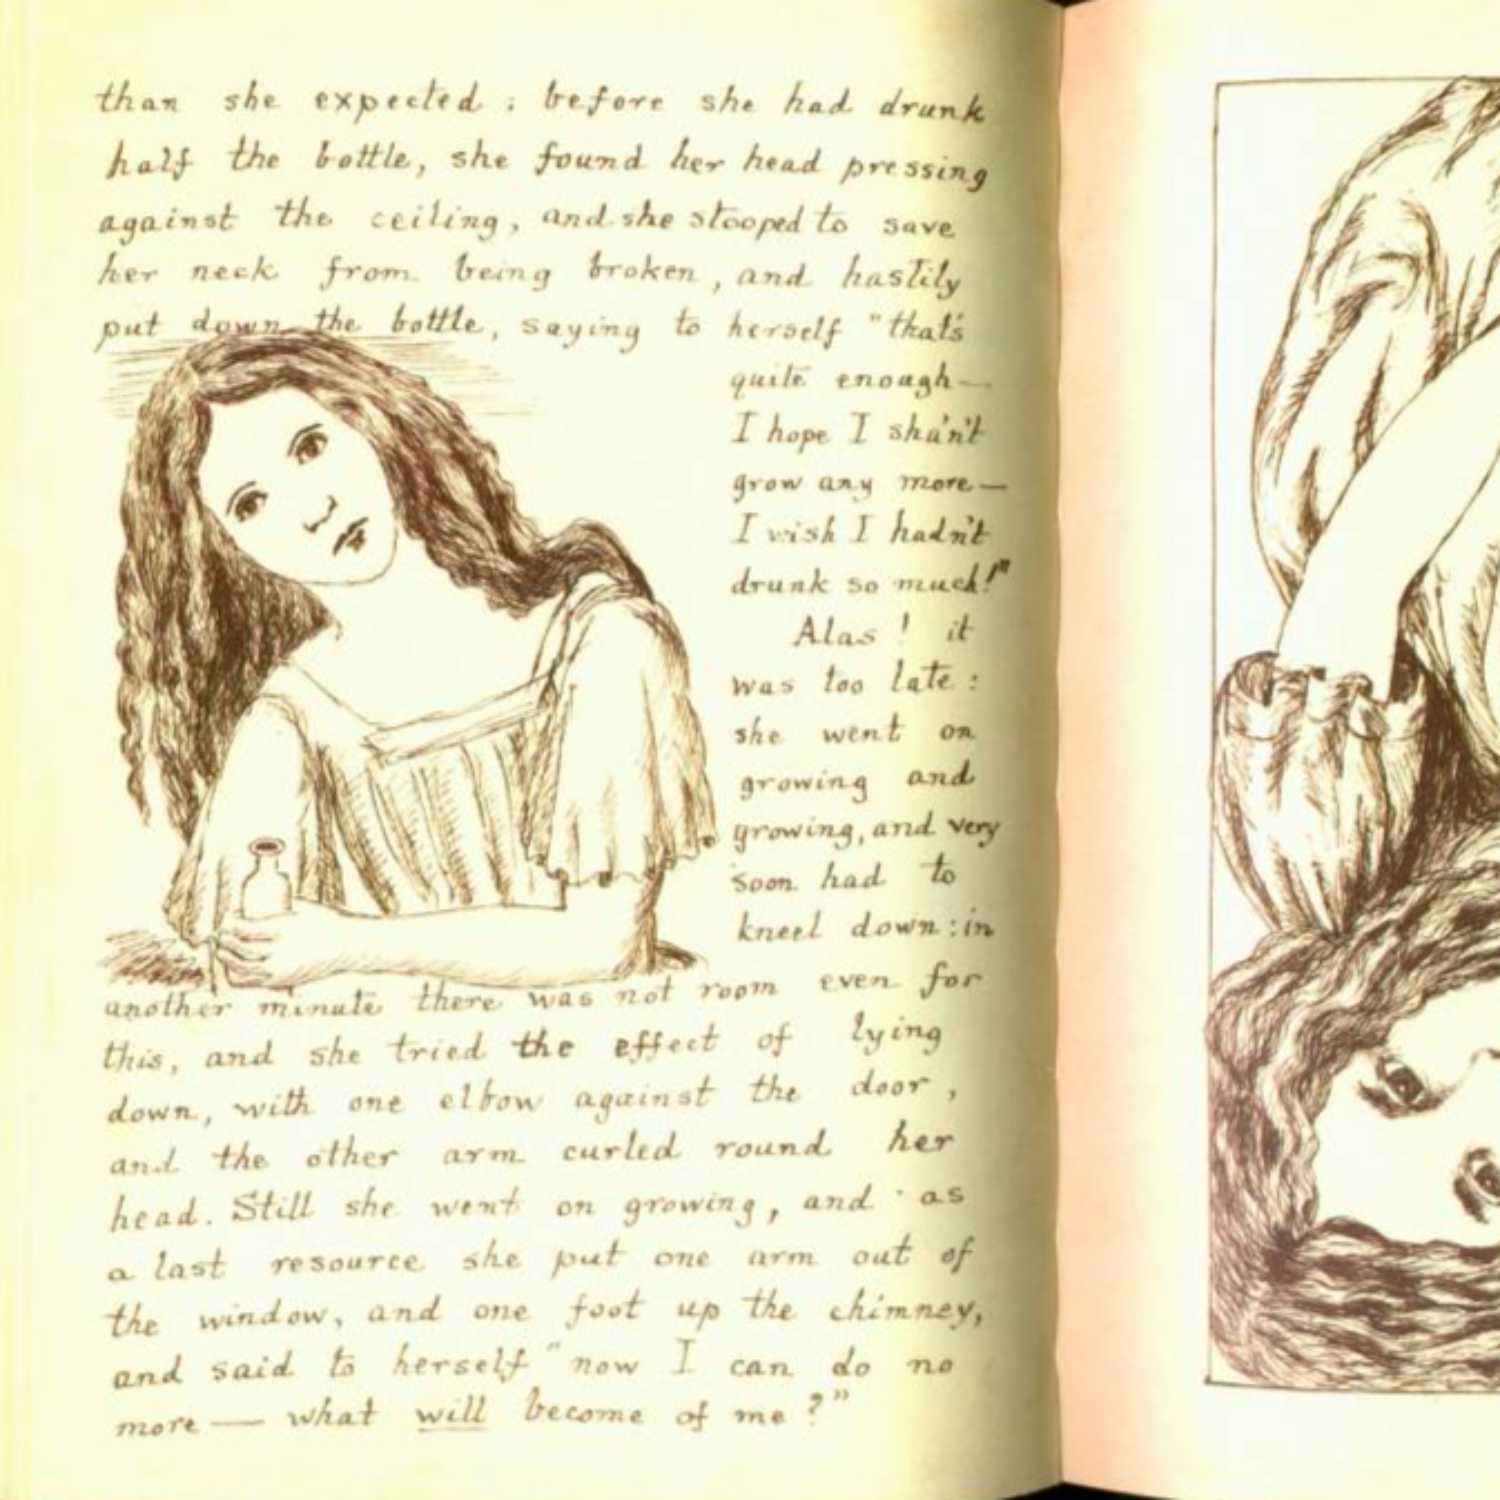 than she expected : before she had drunk
half the bottle, she found her head pressing
against the ceiling, and she stooped to save
her neck from being broken, and hastily
put down the bottle, saying to herself "that's
quite enough—
I hope I sha'n't
grow any more—
I wish I hadn't
drunk so much!"
Alas ! it
was too late :
she went on
growing and
growing, and very
soon had to
kneel down : in
another minute there was not room even for
this, and she tried the effect of lying
down, with one elbow against the door ,
and the other arm curled round her
head. Still she went on growing, and as
a last resource she put one arm out of
the window, and one foot up the chimney,
and said to herself "now I can do no
more — what will become of me ?"